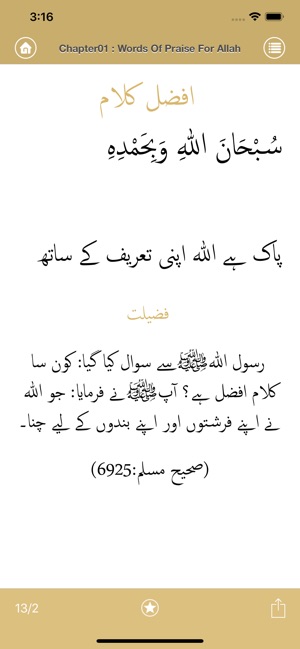 3:16
Chapter01 : Words Of Praise For Allah
افضل کلام
سُبْحَانَ اللهِ وَبِحَمْدِهِ
پاک ہے اللہ اپنی تعریف کے ساتھ
فضیلت
رسول اللہ ﷺ سے سوال کیا گیا: کون سا
کلام افضل ہے؟ آپ ﷺ نے فرمایا: جو اللہ
نے اپنے فرشتوں اور اپنے بندوں کے لیے چنا۔
(صحیح مسلم:6925)
13/2